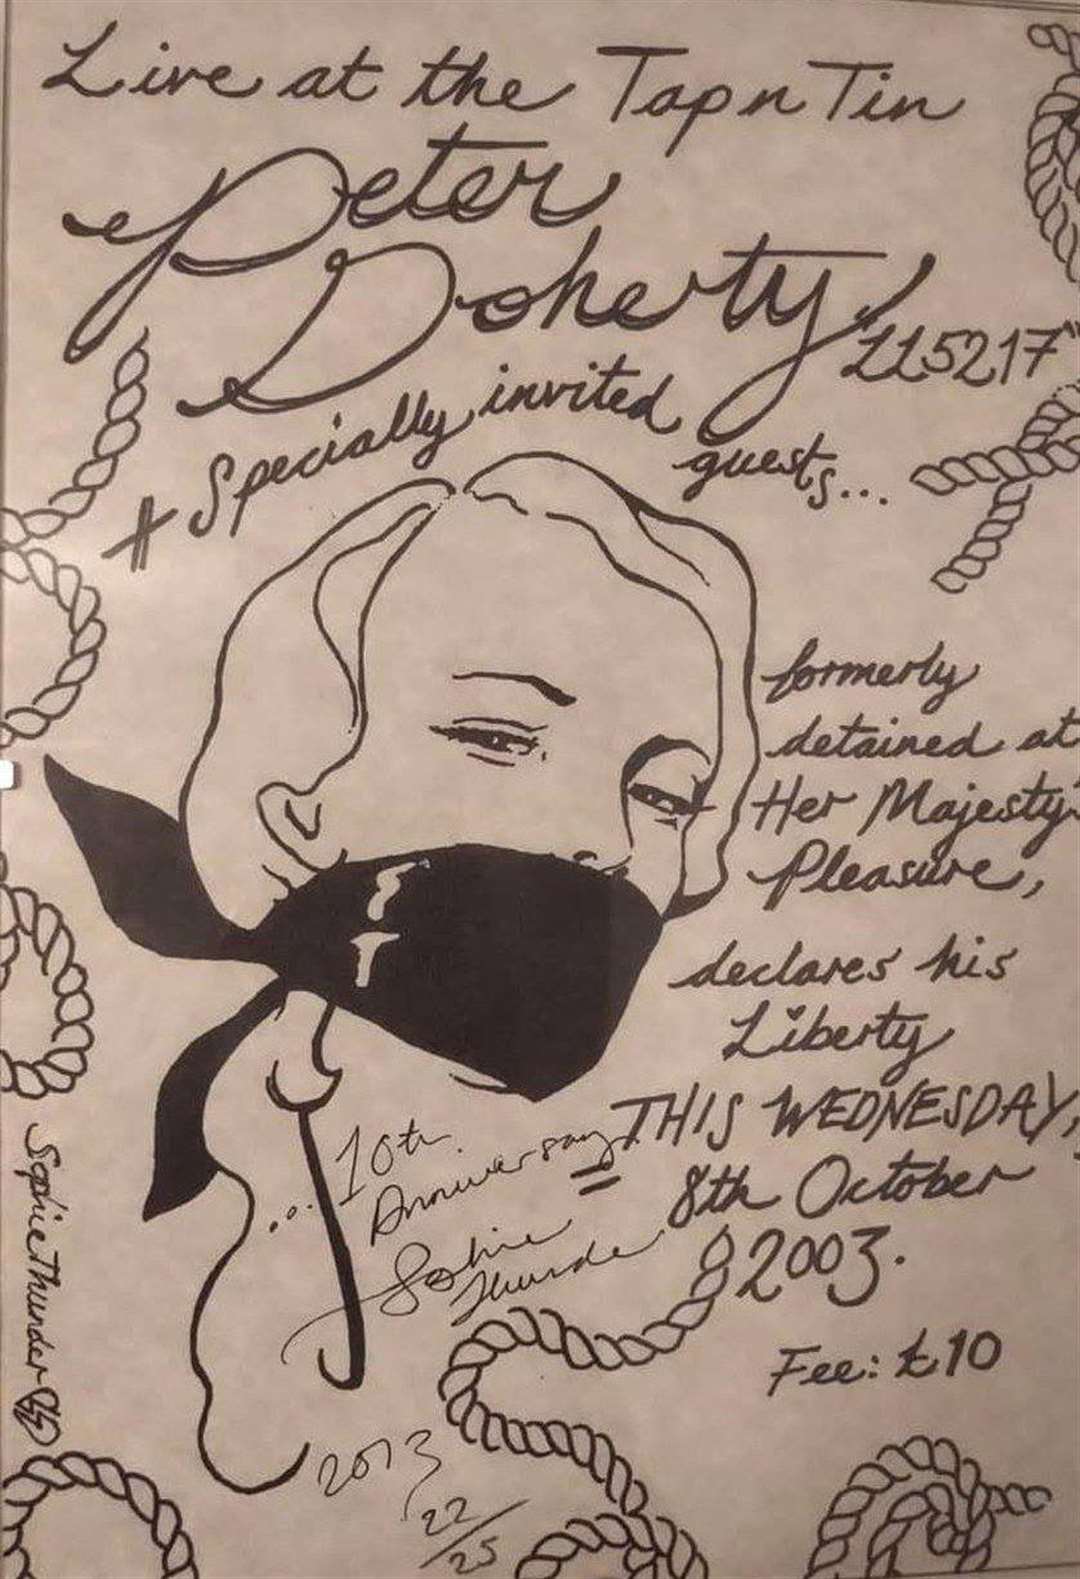 Live at the Tap n Tin
Peter
Doherty
"LL5217"
+ Specially invited
guests...
formerly
detained at
Her Majesty's
Pleasure,
declares his
Liberty
THIS WEDNESDAY,
8th October
2003.
Fee: £10
... 10th
Anniversary
Sophie
Thunder
2013
22/25
Sophie Thunder